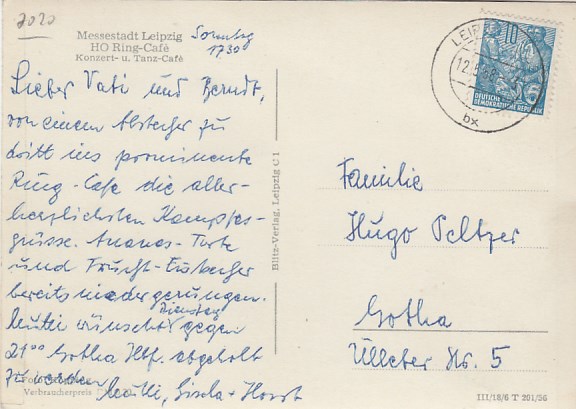 2020
Messestadt Leipzig
HO Ring-Café
Konzert- u. Tanz-Café
Sonntag
17.30
Lieber Vati und Berndt,
von einem Abstecher zu
dritt ins prominente
Ring-Cafe die aller-
herzlichsten Kampfes-
grüsse. Ananas-Torte
und Frucht-Eisbecher
bereits niedergerungen.
Mutti wünscht Dienstag gegen
2100 Gotha Hbf. abgeholt
zu werden Mutti, Gisela + Horst
Verbraucherpreis
Blitz-Verlag, Leipzig C 1
LEIPZIG
12.
bx
10
DEUTSCHE
DEMOKRATISCHE REPUBLIK
Familie
Hugo Peltzer
Gotha
Ülleber Str. 5
III/18/6 T 201/56